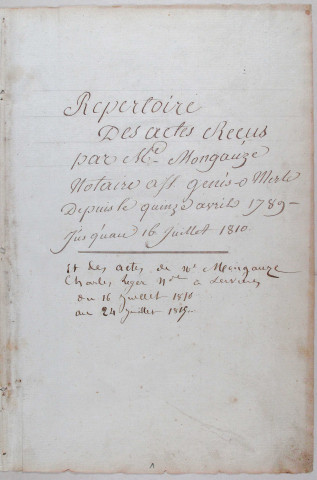 Repertoire
Des actes Recus
par Me Mongauze
Notaire a St genés-o Merle
Depuis le quinze avril 1789-
Jusquau 16 Juillet 1810
Et des actes de Me Mongauze
Charles Leger Nre a
du 16 Juillet 1810
au 24 Juillet 1815